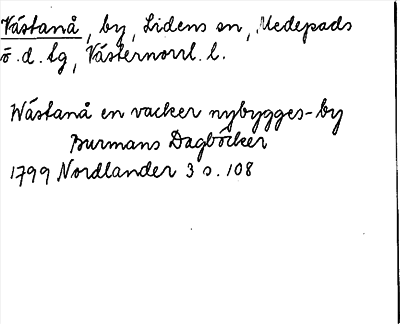 Västanå, by, Lidens sn, Medelpads
ö.d. tg, Västernorrl. l.
Wästanå en vacker nybygges-by
Burmans Dagböcker
1799 Nordlander 3 s. 108